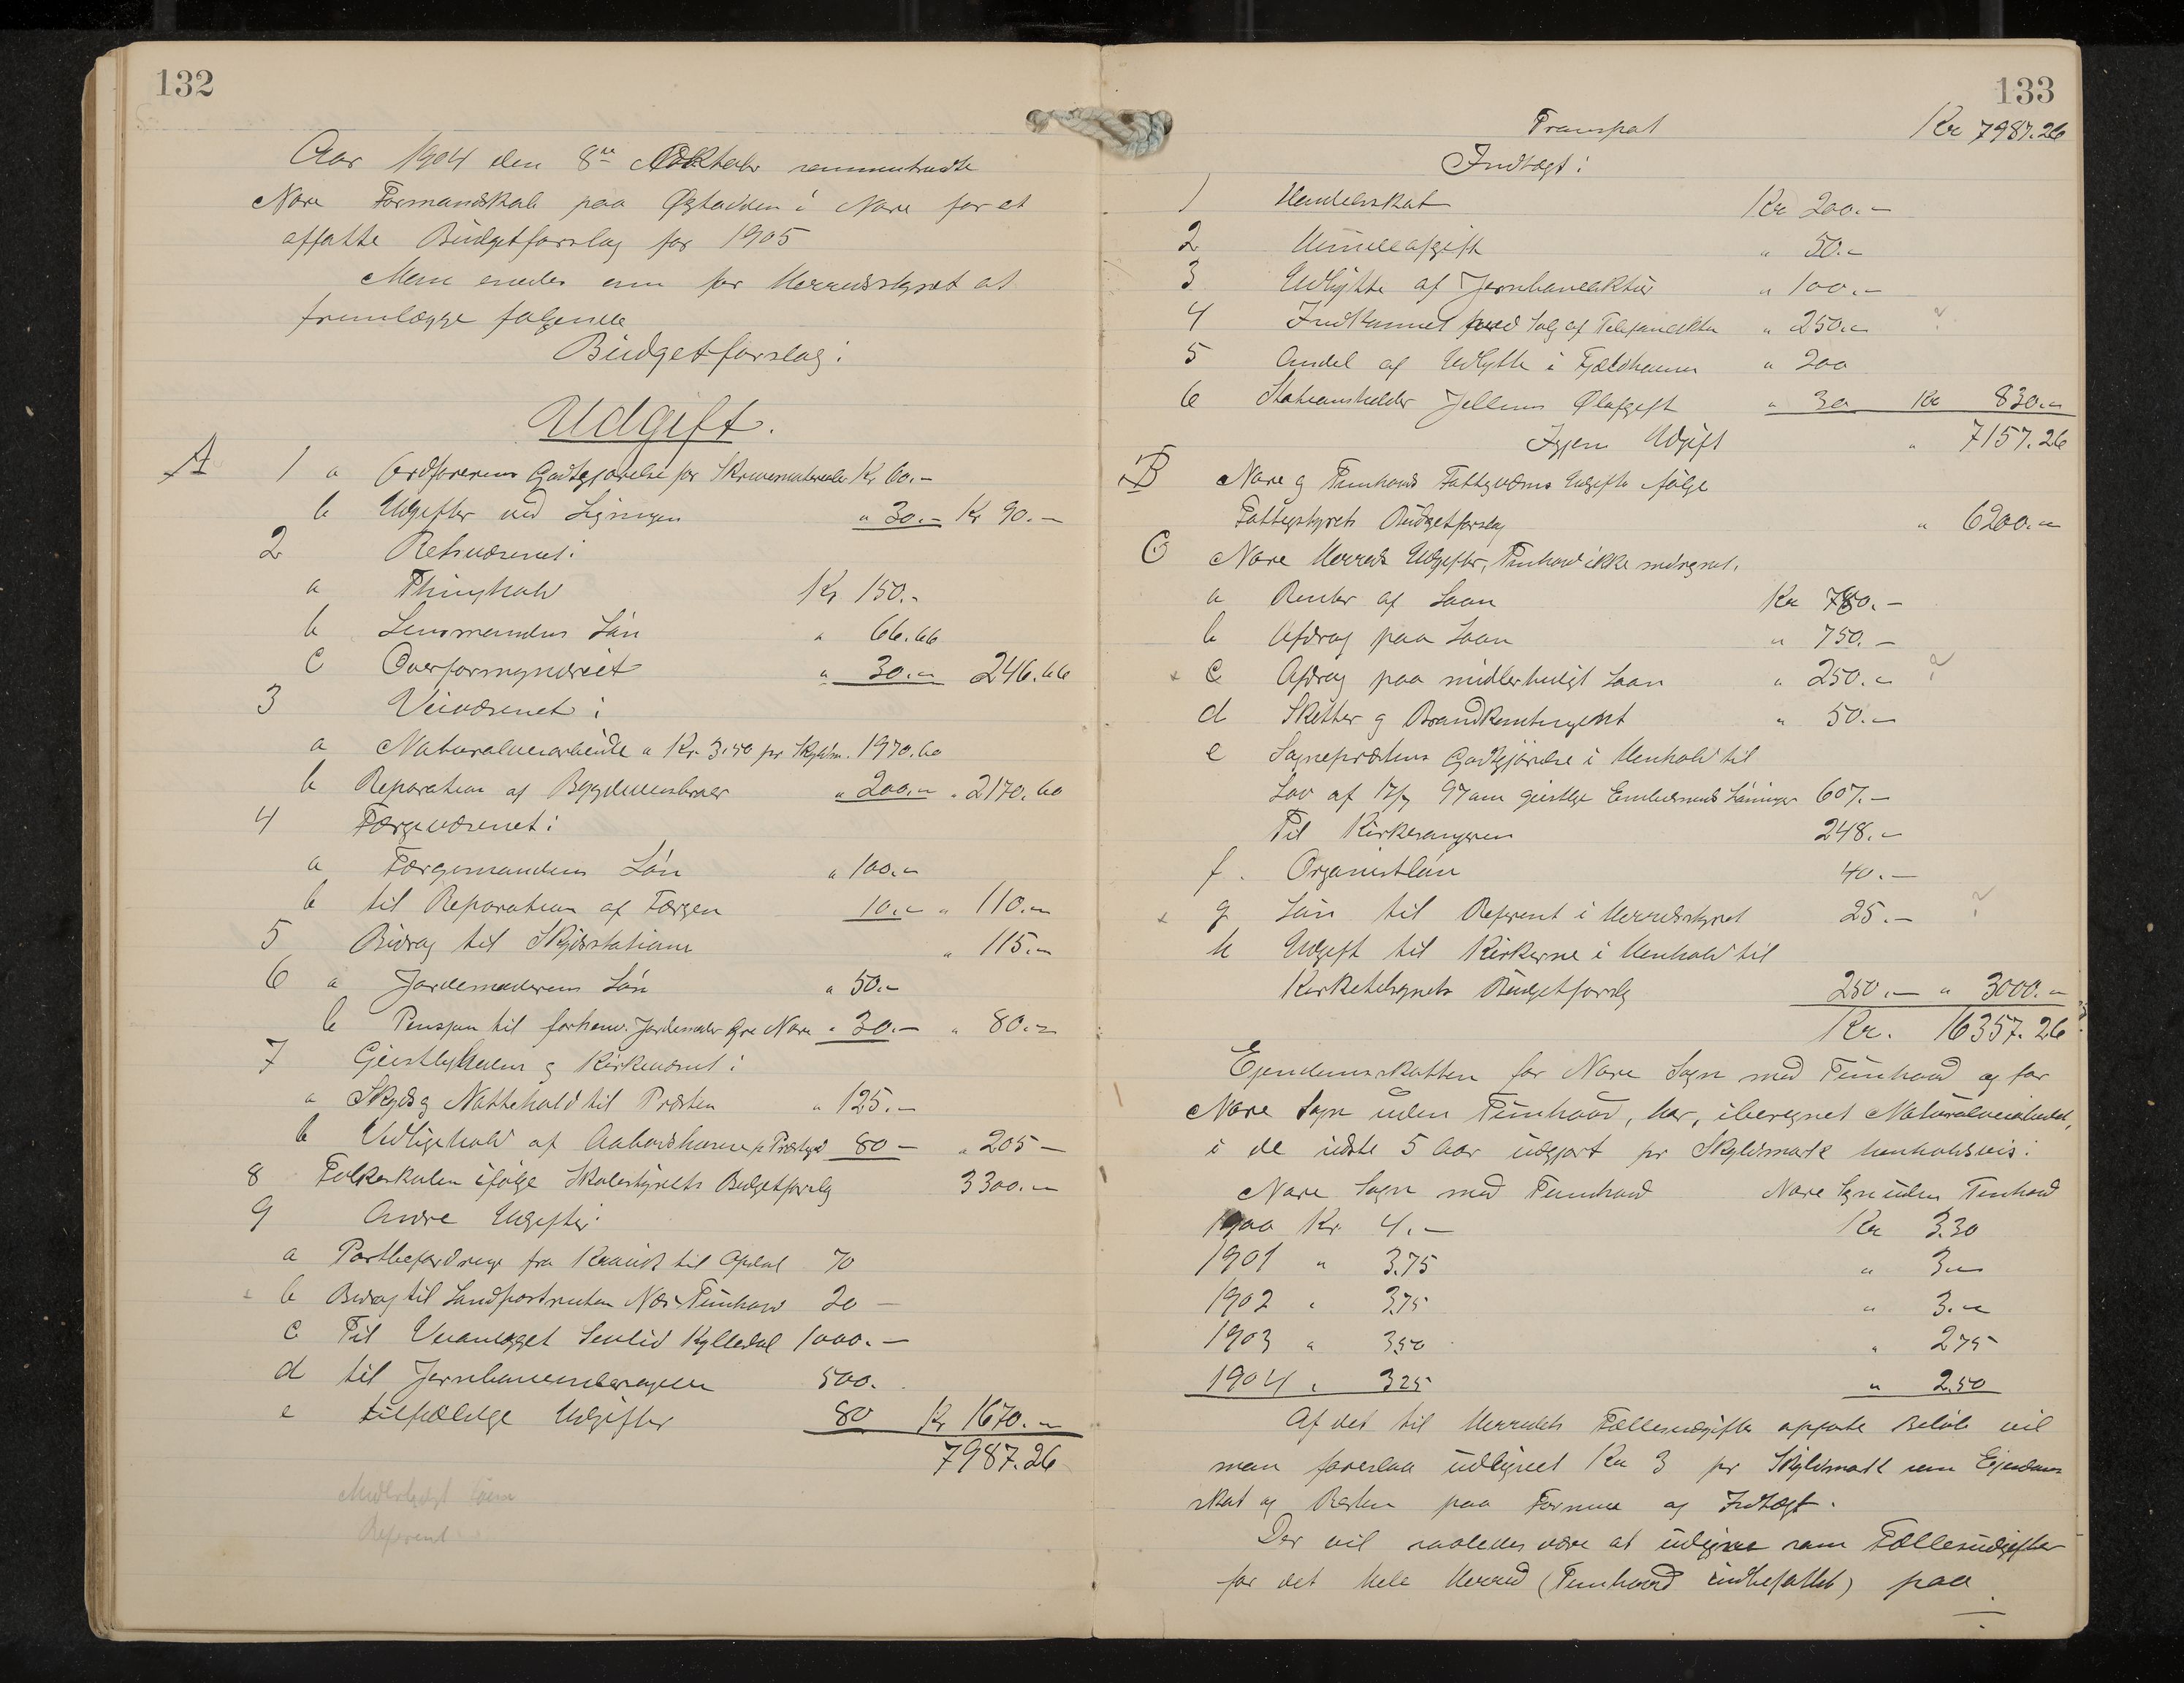 132
Aar 1904 den 8de Oktober sammentraadte
Nore Formandskab paa Øgtaiden i Nore for at
affatte Budgetforslag for 1905
Man enedes om for Herredsstyret at
fremlægge følgende
Budgetforslag:
Udgift.
A 1 a Ordførerens Godtgjørelse for Skrivematerialer Kr 60.-
b Udgifter ved Ligningen " 30.- Kr 90.-
2 Retsvæsenet:
a Thinghold Kr 150.-
b Lensmandens Løn " 66.66
C Overformynderiet " 30.- 246.66
3 Veivæsenet:
a Naturalveiarbeide a Kr 3.50 pr Skyldm. 1970.60
b Reparation af Bygdeveisbroer " 200.- " 2170.60
4 Færgevæsenet:
a Færgemandens Løn " 100.-
b til Reparation af Færgen 10.- " 110.-
5 Bidrag til Skydsstation " 115.-
6 a Jordemoderens Løn " 50.-
b Pensjon til forhenv. Jordemoder Gro Nore " 30.- " 80.-
7 Geistligheden g Kirkevæsnet:
a Skyds g Nattehold til Præsten " 125.-
b Vedligehold af Aabodshusene p Præstegd 80 - " 205 -
8 Folkeskolen ifølge Skolestyrets Budgetforslg 3300.-
9 Andre Udgifter:
a Postbefordring fra Kravik til Opdal 70
b Bidrag til Landpostruten Næs Tunhovd 20 -
c Til Veianlægget Senlid Kylledal 1000.-
d til Jernbaneundersøgelser 500.
e tilfældige Udgifter 80 Kr 1670.-
7987.26
Midlertidigt Laan
Referent
133
Transport Kr 7987.26
Indtægt:
1 Handelsskat Kr 200.-
2 Hundeafgift " 50.-
3 Udbytte af Jernbaneaktier " 100.-
4 Indkommet ved Salg af Telefonaktier " 250.- ?
5 Andel af Udbytte i Fjeldhavner " 200
6 Stationsholder Jellums Ølafgift " 30 Kr 830.-
Igjen Udgift " 7157.26
B Nore g Tunhovds Fattigvæsns Udgifter ifølge
Fattigstyrets Budgetforslag " 6200.-
C Nore Herreds Udgifter, Tunhovd ikke medregnet.
a Renter af Laan Kr 780.-
b Afdrag paa Laan " 750.-
x C Afdrag paa midlertidigt Laan " 250.- ?
d Skatter g Brandkontingent " 50.-
e Sogneprestens Godtgjørelse i Henhold til
Lov af 17/7 97 om geistlige Embedsmænds Lønninger 607.-
Til Kirkesangeren 248.-
f. Organistløn 40.-
x g Løn til Referent i Herredsstyret 25.- ?
h Udgift til Kirkerne i Henhold til
Kirketilsynets Budgetforslg 250.- " 3000.-
Kr. 16357.26
Ejendomsskatten for Nore Sogn med Tunhovd og for
Nore Sogn uden Tunhovd, har, iberegnet Naturalveiarbeidet,
i de sidste 5 Aar udgjort pr Skyldmark henholdsvis:
Nore Sogn med Tunhovd Nore Sogn uden Tunhovd
1900 Kr 4.- Kr 3.30
1901 " 3.75 " 3.-
1902 " 3.75 " 3.-
1903 " 3.50 " 2.75
1904 " 3.25 " 2.50
Af det til Herredets Fællesudgifter opførte Beløb vil
man foreslaa udlignet Kr 3 pr Skyldmark som Ejendoms
skat og Resten paa Formue og Indtægt.
Der vil saaledes være at udligne som Fællesudgifter
for det hele Herred (Tunhovd indbefattet) paa